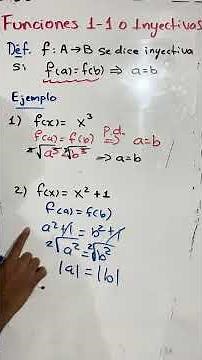 Funciones 1-1 o Inyectivas
Def. f: A→B se dice inyectiva
si f(a)=f(b) ⇒ a=b
Ejemplo
1) f(x)= x³
f(a)=f(b) P.d. ⇒ a=b
∛a³ = ∛b³ ⇒ a=b
2) f(x)= x²+1
f(a)=f(b)
a²+1=b²+1
²√a²=²√b²
|a|=|b|